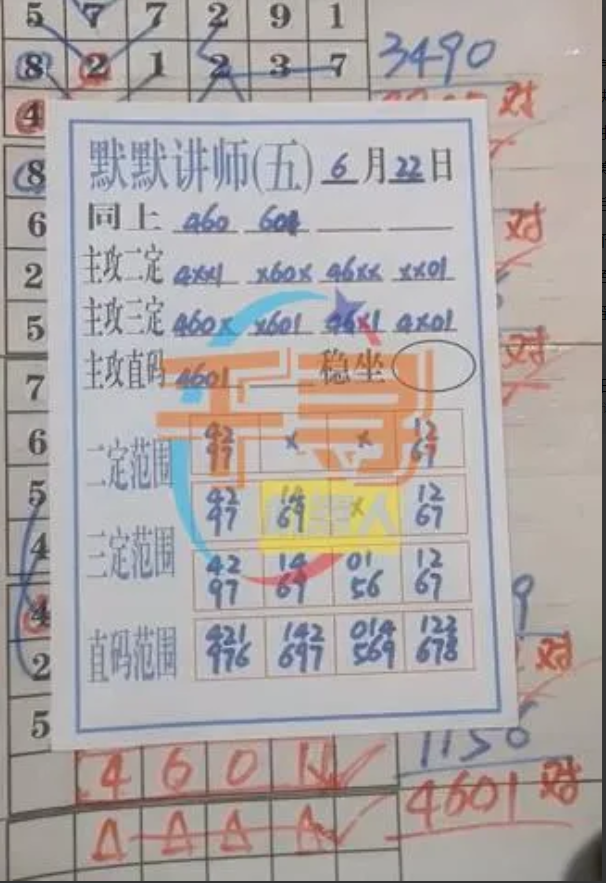 5 7 7 2 9 1
8 2 1 2 3 7
3490
4
对
默默讲师(五) 6月22日
8
同上 460 601
6
对
主攻二定 4xx1 x60x 46xx xx01
2
主攻三定 460x x601 46x1 4x01
5
对
主攻直码 4601 稳坐
7
千寻
二定范围 42 97 x x 12 67
6
42 97 14 69 x 12 67
5
三定范围 42 97 14 69 01 56 12 67
4
4
9
直码范围 421 976 142 697 014 569 123 678
2
对
5
1156
4 6 0 1
4601 对